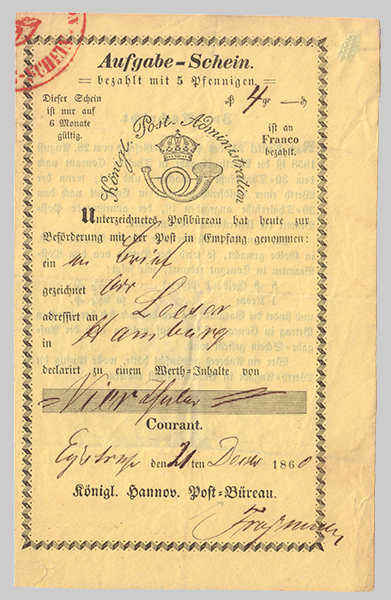 Aufgabe-Schein.
bezahlt mit 5 Pfennigen.
Dieser Schein
ist nur auf
6 Monate
gültig.
4
ist an
Franco
bezahlt.
Königl. Post-Administration
Unterzeichnetes Postbüreau hat heute zur
Beförderung mit der Post in Empfang genommen:
ein Brief
gezeichnet
adressirt an Loeser
in Hamburg
declarirt zu einem Werth-Inhalte von
Vier Thaler
Courant.
Eystrup den 21ten Decbr 1860
Königl. Hannov. Post-Büreau.